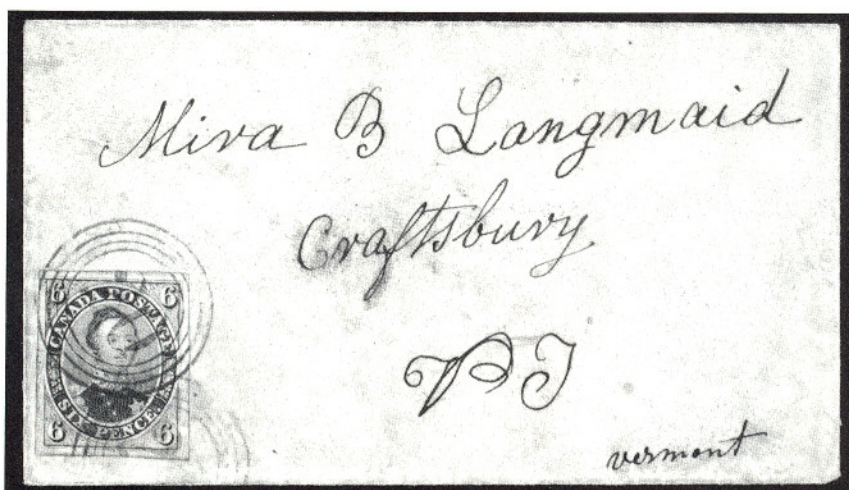 Mira B Langmaid
Craftsbury
VT
vermont
6 6
CANADA POSTAGE
SIX PENCE
6 6